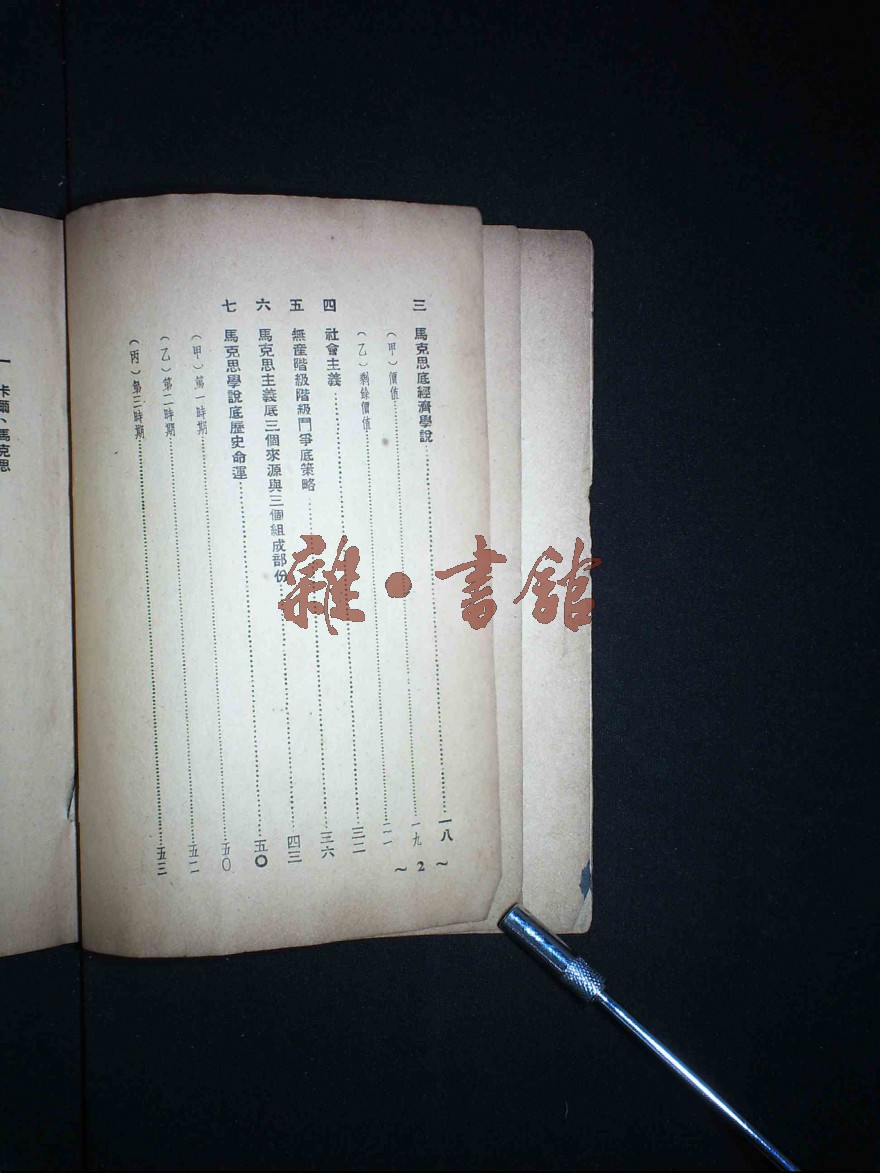 三 馬克思底經濟學說……一八
（甲）價值……一九
（乙）剩餘價值……二一
四 社會主義……三二
五 無產階級階級鬥爭底策略……三六
六 馬克思主義底三個來源與三個組成部份……四三
七 馬克思學說底歷史命運……五〇
（甲）第一時期……五〇
（乙）第二時期……五二
（丙）第三時期……五三
～2～
一 卡爾、馬克思
雜·書館